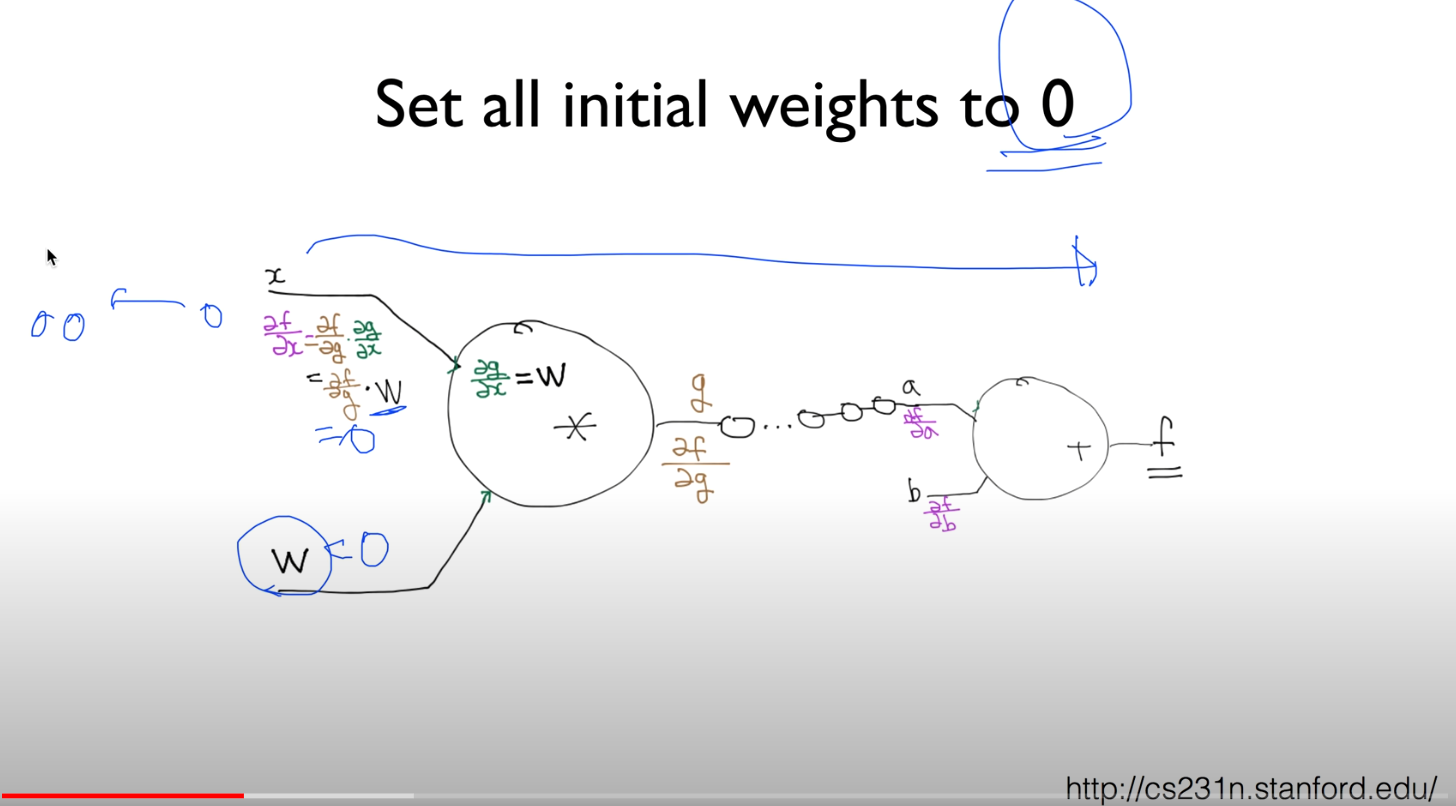 Set all initial weights to 0
x
0 0 0
∂f/∂x = ∂f/∂g · ∂g/∂x
= ∂f/∂g · W
= 0
∂g/∂x = W
*
g
∂f/∂g
...
a
∂f/∂a
+
f
b
∂f/∂b
W = 0
http://cs231n.stanford.edu/